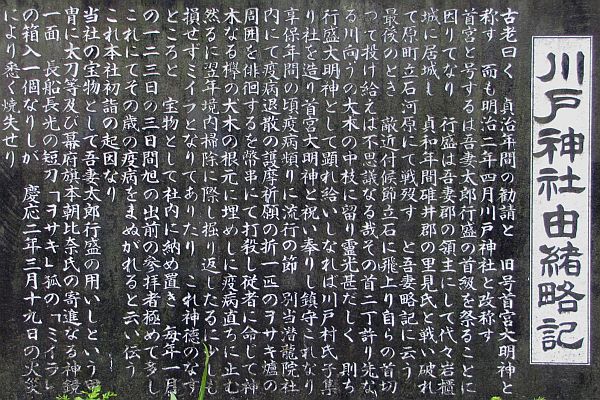 川戸神社由緒略記
古老曰く 貞治年間の勧請と 旧号首宮大明神と
称す 而も明治三年四月川戸神社と改称す
首宮と号するは吾妻太郎行盛の首級を祭ることに
因りてなり 行盛は吾妻郡の領主にして代々岩櫃
城に居城し 貞和年間碓井郡の里見氏と戦い破れ
て原町立石河原にて戦歿す と吾妻略記に云う
最後のとき 敵近付候節立石に飛上り自らの首切
って投げ給えは不思議なる哉その首二丁許り先な
る川向うの大木の中枝に留り霊光甚だしく 則ち
行盛大明神として顕れ給いしなれば川戸村氏子集
り社を造り首宮大明神と祝い奉りし鎮守これなり
享保年間の頃疫病頻りに流行の節 別当潜龍院社
内にて疫病退散の護摩祈願の折一匹のヲサキ爐の
周囲を徘徊するを幣串にて打殺し従者に命して神
木なる欅の大木の根元に埋めしに疫病直ろに止む
然るに翌年境内掃除に際し掘り返したるに少しも
損せすミイラとなりてありたり これ神徳のなす
ところと 宝物として社内に納め置き 毎年一月
の一二三日の三日間旭の出前の参拝者極めて多し
これにてその歳の疫病をまぬがれると云い伝う
これ本社初詣の起因なり
当社の宝物として吾妻太郎行盛の用いしという甲
冑に太刀等及び幕府旗本朝比奈氏の寄進なる神鏡
一面 長船長光の短刀「ヲサキ」狐の「ミイラ」
の箱入一個なりしが 慶応二年三月十九日の火災
により悉く焼失せり